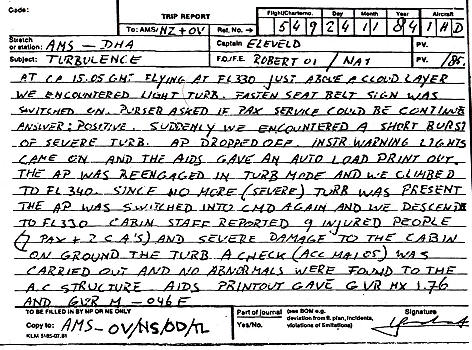 Code:
TRIP REPORT
Flight/Charterno.
Day
Month
Year
Aircraft
To: AMS/NZ + OV
Ref. No. →
549 24 11 84 1HD
Stretch or station: AMS - DHA
Captain ELEVELD
PV.
Subject: TURBULENCE
F.O./F.E. ROBERT OI / NAY
PV. /85.
AT CA 15.05 GMT FLYING AT FL330 JUST ABOVE A CLOUD LAYER
WE ENCOUNTERED LIGHT TURB. FASTEN SEAT BELT SIGN WAS
SWITCHED ON. PURSER ASKED IF PAX SERVICE COULD BE CONTINUE
ANSWER: POSITIVE. SUDDENLY WE ENCOUNTERED A SHORT BURST
OF SEVERE TURB. AP DROPPED OFF. INSTR WARNING LIGHTS
CAME ON AND THE AIDS GAVE AN AUTO LOAD PRINT OUT.
THE AP WAS REENGAGED IN TURB MODE AND WE CLIMBED
TO FL 340. SINCE NO MORE (SEVERE) TURB WAS PRESENT
THE AP WAS SWITCHED INTO CMD AGAIN AND WE DESCEND
TO FL330. CABIN STAFF REPORTED 9 INJURED PEOPLE
(7 PAX + 2 CA'S) AND SEVERE DAMAGE TO THE CABIN
ON GROUND THE TURB A CHECK (ACC MAI 05) WAS
CARRIED OUT AND NO ABNORMALS WERE FOUND TO THE
A.C STRUCTURE. AIDS PRINTOUT GAVE GVR MX 1.76
AND GVR M -046E
TO BE FILLED IN BY NP OR NE ONLY
Copy to: AMS-OV/NS/DD/TL
KLM 5185-07.81
Part of journal (see BOM e.g.
Yes/No.
deviation from fl. plan, incidents,
violations of limitations)
Signature